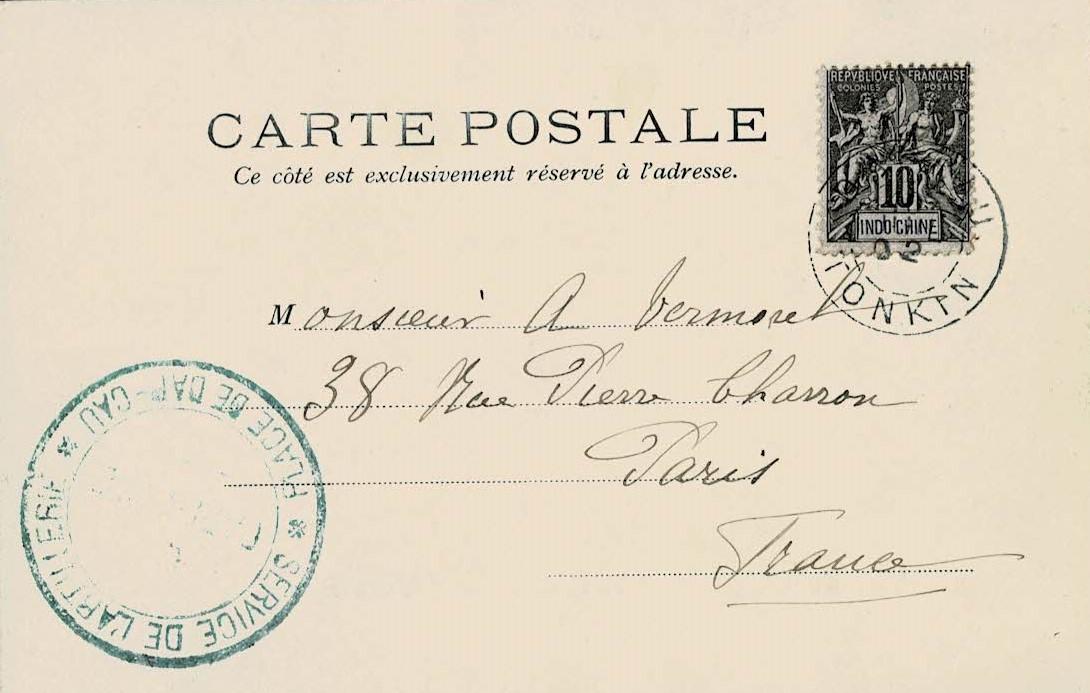 CARTE POSTALE
Ce côté est exclusivement réservé à l'adresse.
REPVBLIQVE FRANÇAISE
COLONIES POSTES
10
INDO-CHINE
02
TONKIN
Monsieur A Vermorel
38 Rue Pierre Charron
Paris
France
PLACE DE DAP-CAU * SERVICE DE L'ARTILLERIE *